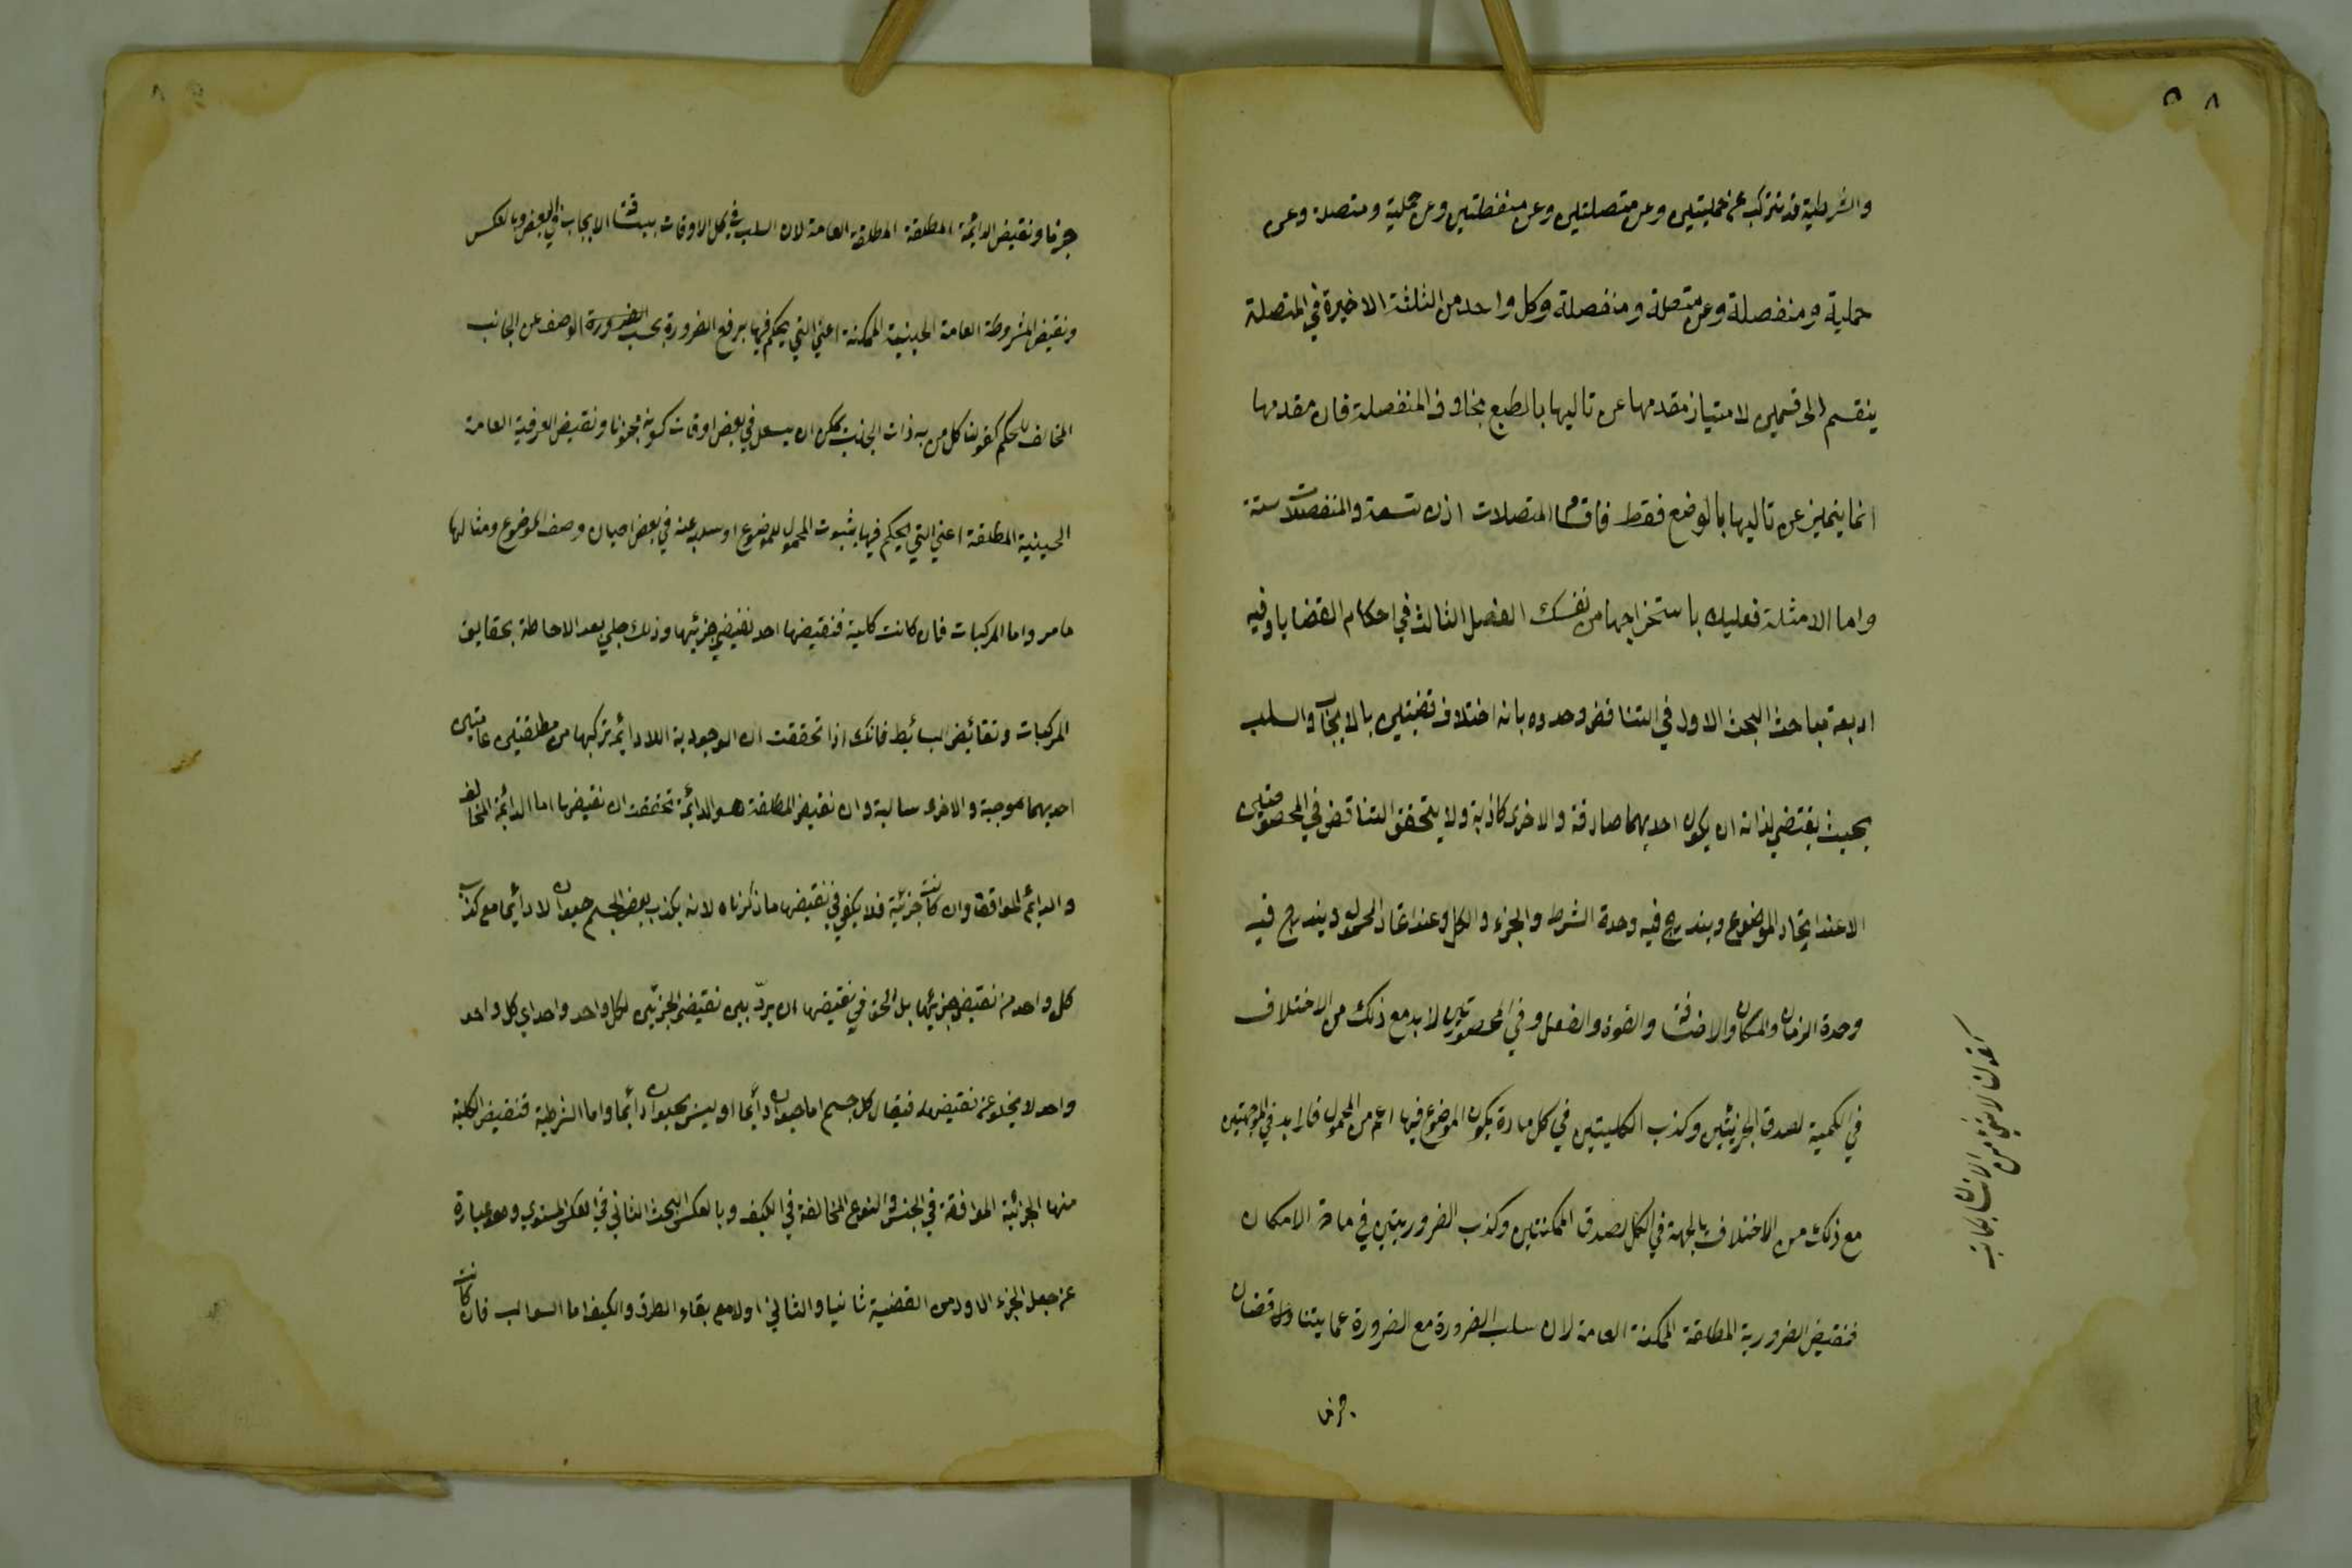 ٨ ٥
والشرطية قد تتركب عن حمليتين وعن متصلتين وعن منفصلتين وعن حملية ومتصلة وعن
حملية ومنفصلة وعن متصلة ومنفصلة وكل واحد من الثلثة الاخيرة في المتصلة
ينقسم الى قسمين لامتياز مقدمها عن تاليها بالطبع بخلاف المنفصلة فان مقدمها
انما يتميز عن تاليها بالوضع فقط فاقسام المتصلات اذن تسعة والمنفصلات ستة
واما الامثلة فعليك باستخراجها من نفسك الفصل الثالث في احكام القضايا وفيه
اربعة مباحث البحث الاول في التناقض وحدوه بانه اختلاف قضيتين بالايجاب والسلب
بحيث يقتضي لذاته ان يكون احديهما صادقة والاخرى كاذبة ولا يتحقق التناقض في المخصوصتين
الا عند اتحاد الموضوع ويندرج فيه وحدة الشرط والجزء والكل وعند اتحاد المحمول ويندرج فيه
وحدة الزمان والمكان والاضافة والقوة والفعل وفي المحصورتين لا بد مع ذلك من الاختلاف
في الكمية لصدق الجزئيتين وكذب الكليتين في كل مادة يكون الموضوع فيها اعم من المحمول فلا بد في الموجهتين
مع ذلك من الاختلاف بالجهة في الكل لصدق الممكنتين وكذب الضروريتين في مادة الامكان
فنقيض الضرورية المطلقة الممكنة العامة لان سلب الضرورة مع الضرورة مما يتناقضان
جزما
كقولنا لا شيء من الانسان بكاتب
جزما ونقيض الدائمة المطلقة المطلقة العامة لان السلب في كل الاوقات ينافيه الايجاب في البعض وبالعكس
ونقيض المشروطة العامة الحينية الممكنة اعني التي يحكم فيها برفع الضرورة بحسب الضرورة الوصف عن الجانب
المخالف للحكم كقولنا كل من به ذات الجنب يمكن ان يسعل في بعض اوقات كونه مجنوبا ونقيض العرفية العامة
الحينية المطلقة اعني التي يحكم فيها بثبوت المحمول للموضوع او سلبه عنه في بعض احيان وصف الموضوع ومثالها
ما مر واما المركبات فان كانت كلية فنقيضها احد نقيضي جزئيها وذلك جلي بعد الاحاطة بحقايق
المركبات ونقائض البسائط فانك اذا تحققت ان الوجودية اللادائمة تركبها من مطلقتين عامتين
احديهما موجبة والاخرى سالبة وان نقيض المطلقة هو الدائمة تحققت ان نقيضها اما الدائمة المخالف
والدائم الموافقة وان كانت جزئية فلا يكفي في نقيضها ما ذكرناه لانه يكذب بعض الجسم حيوان لا دائما مع كذب
كل واحد من نقيض جزئيها بل الحق في نقيضها ان يردّ بين نقيضي الجزئين لكل واحد واحد اي كل واحد
واحد لا يخلو عن نقيضهما فيقال كل جسم اما حيوان دائما او ليس بحيوان دائما واما الشرطية فنقيض الكلية
منها الجزئية الموافقة في الجنس والنوع المخالفة في الكيف وبالعكس البحث الثاني في العكس المستوي وهو عبارة
عن جعل الجزء الاول من القضية ثانيا والثاني اولا مع بقاء الصدق والكيف اما السوالب فان كانت